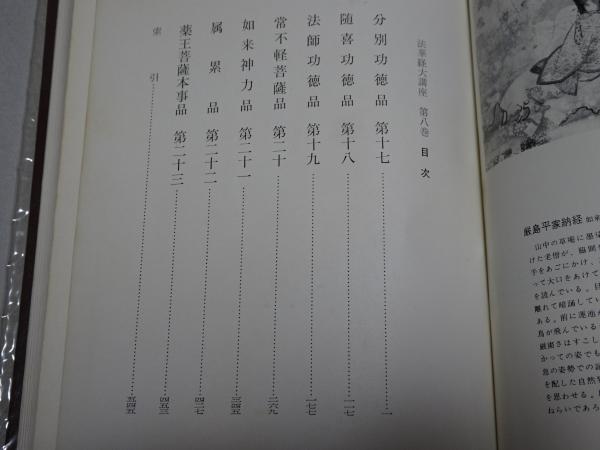 法華経大講座 第八巻 目次
分別功徳品 第十七 一
随喜功徳品 第十八 一一七
法師功徳品 第十九 一七七
常不軽菩薩品 第二十 二六九
如来神力品 第二十一 三四五
属累品 第二十二 四二七
薬王菩薩本事品 第二十三 四五三
索引 五四五
厳島平家納経
山中の草庵に墨染
けた老僧が、脇
手をあごにかけ、
って大口をあけて
を読んでいる。
離れて暗誦してい
ある。前に蓮池が
鳥が飛んでいる
厳粛さはすこし
かっての姿でも
息の姿勢での
を配した自然
を思わせる。
ねらいであろ